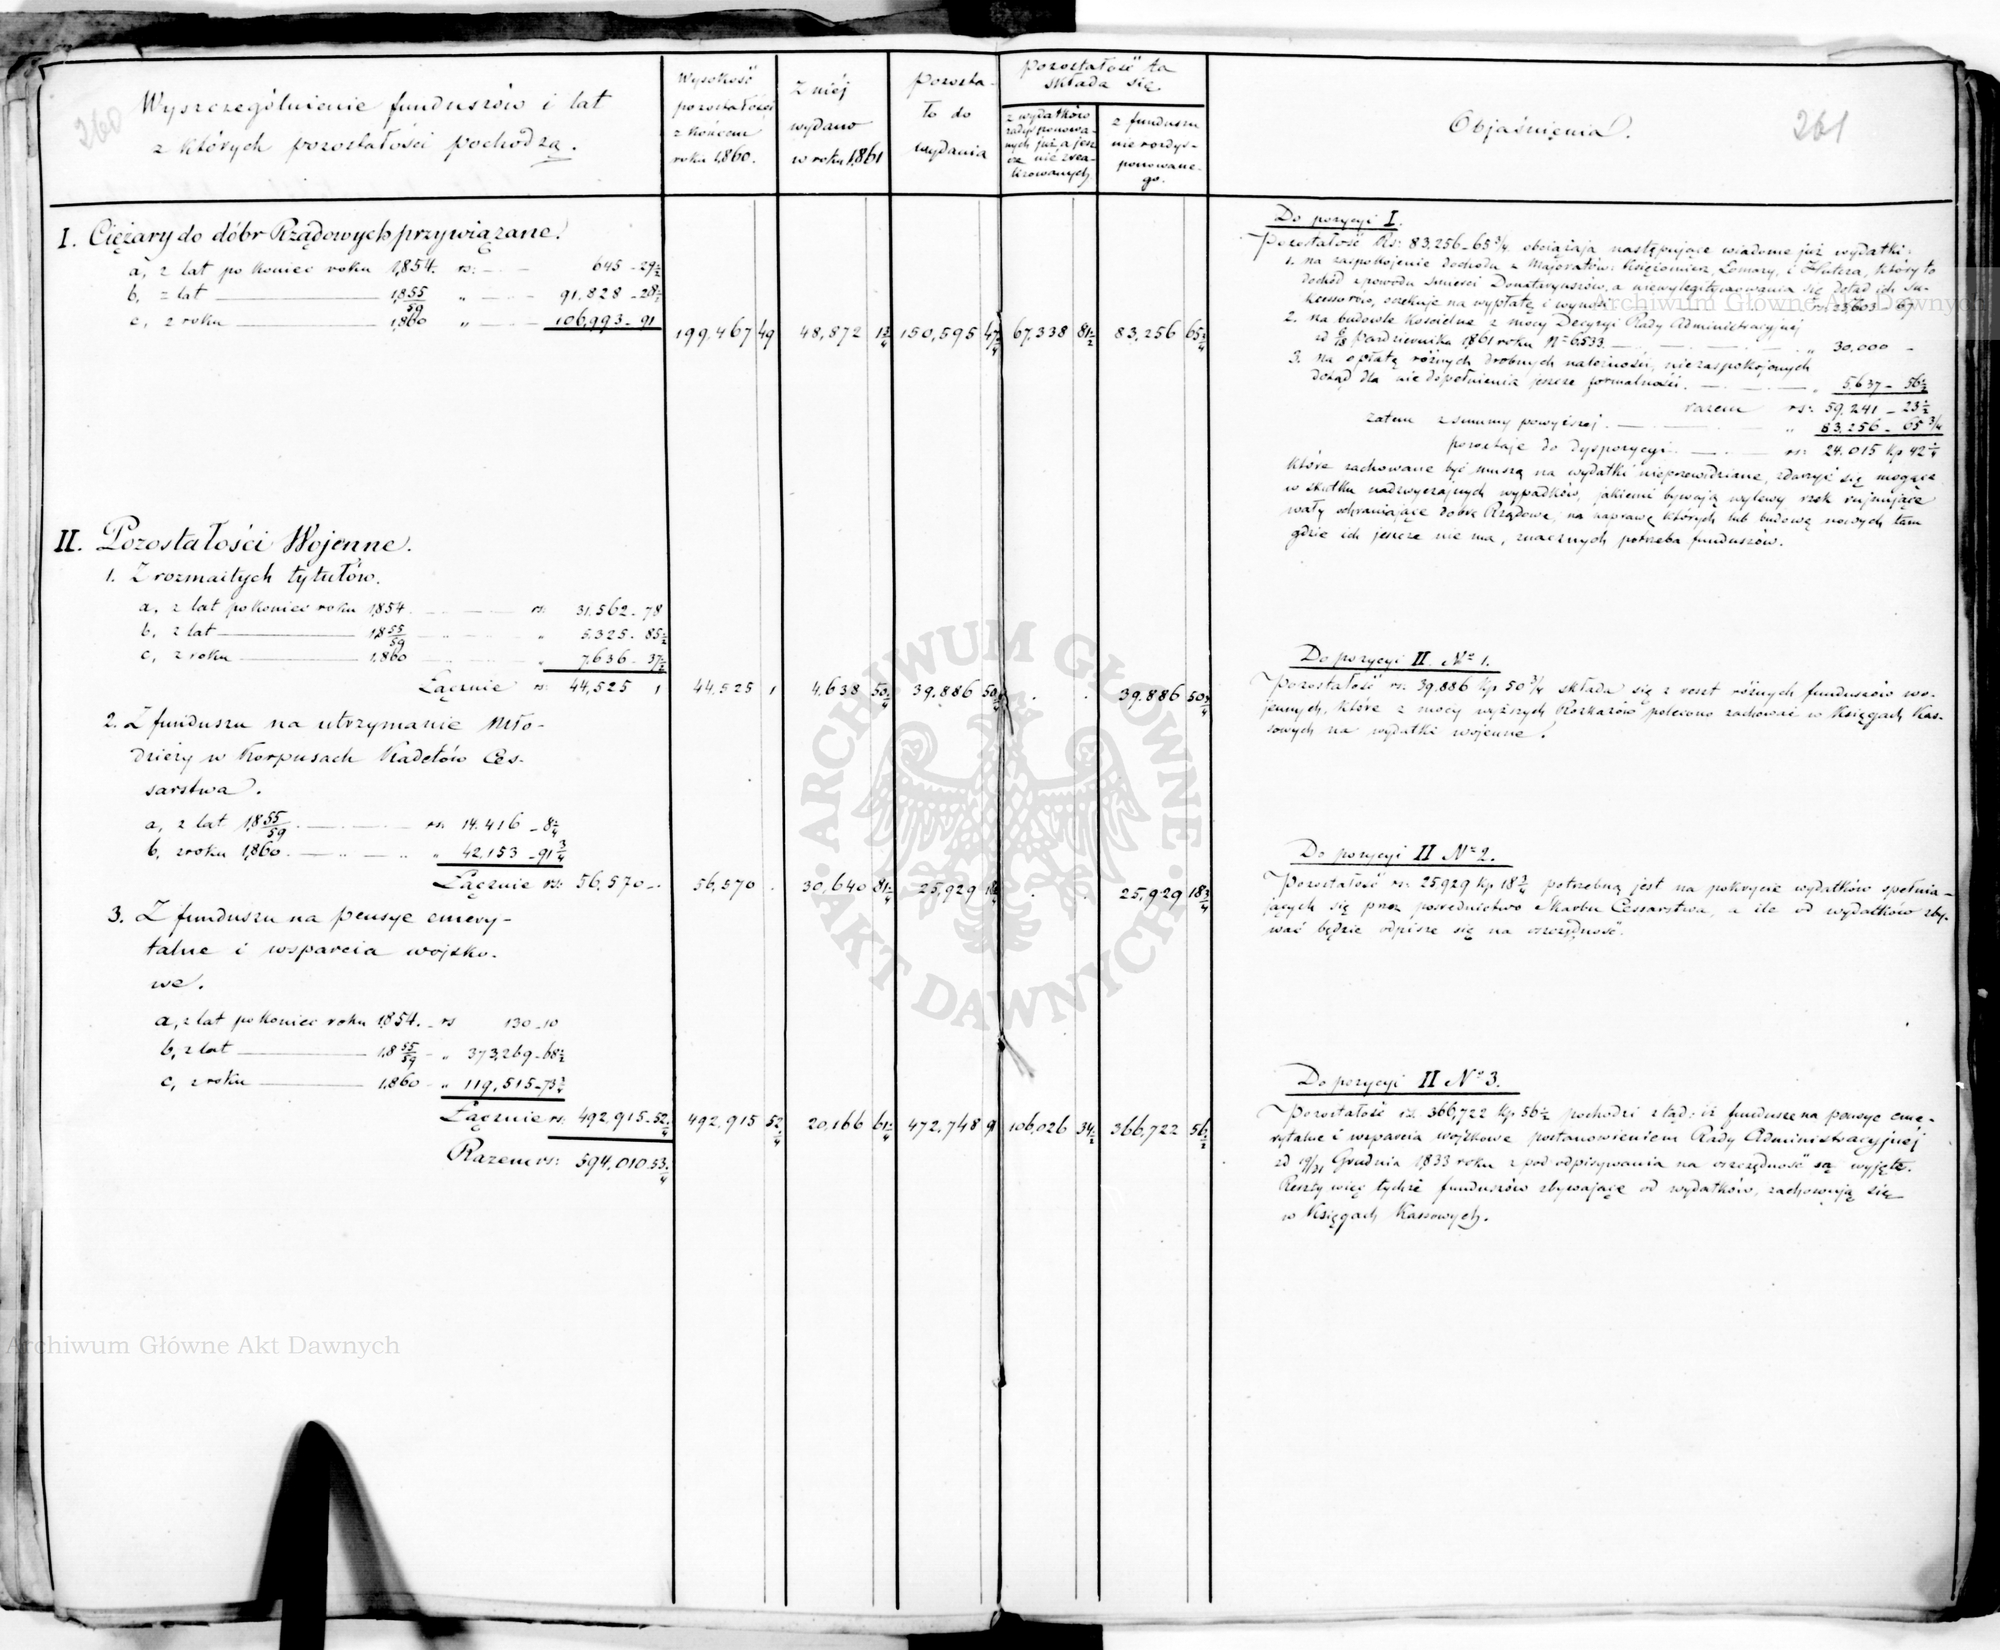 260
Wyszczególnienie funduszów i lat
z których pozostałości pochodzą.
Wysokość
pozostałości
z końcem
roku 1,860.
Z niéj
wydano
w roku 1,861
Pozosta-
ło do
wydania
Pozostałość ta
składa się
z wydatków
zadysponowa-
nych już a jesz
cze nie zrea-
lizowanych
z funduszu
nie rozdys-
ponowane-
go.
Objaśnienia.
261
I. Ciężary do dóbr Rządowych przywiązane.
a, z lat po koniec roku 1,854. rs: 645 - 29½
b, z lat 1,855/59 " 91,828 - 28½
c, z roku 1,860 " 106,993 - 91
199,467 49 48,872 150,595 67,338 81½ 83,256 65¾
II. Pozostałości Wojenne.
1. Z rozmaitych tytułów.
a, z lat po koniec roku 1,854 rs: 31,562 - 78
b, z lat 1,855/59 " 5,325 - 85½
c, z roku 1,860 " 7,636 - 37½
Łącznie rs: 44,525 1 44,525 1 4,638 50¼ 39,886 50¾ 39,886 50¾
2. Z funduszu na utrzymanie Mło-
dzieży w Korpusach Kadetów Ces-
sarstwa.
a, z lat 1,855/59 rs: 14,416 - 8¼
b, z roku 1,860 " 42,153 - 91¾
Łącznie rs: 56,570 - . 56,570 . 30,640 81¼ 25,929 18¾ 25,929 18¾
3. Z funduszu na pensye emery-
talne i wsparcia wojsko-
we.
a, z lat po koniec roku 1,854. rs 130 - 10
b, z lat 1,855/59 " 373,269 - 68½
c, z roku 1,860 " 119,515 - 73¾
Łącznie rs: 492,915 - 52¼ 492,915 52¼ 20,166 61¼ 472,748 91 106,026 34½ 366,722 56½
Razem rs: 594,010 53¼
Do pozycyi I.
Pozostałość Rs: 83,256 - 65¾ obciążają następujące wiadome już wydatki:
1. na zaspokojenie dochodu z Majoratów: Księżomierz, Łomazy, i Hutcza, który to
dochód z powodu śmierci Donataryuszów, a niewylegitymowania się dotąd ich Suk-
kcessorów, oczekuje na wypłatę i wynosi rs: 23,603 - 67.
2. na budowle Kościelne z mocy Decyzyi Rady Administracyjnej
zd 6/18 Października 1,861 roku Nº 6533. " 30,000 -
3. na opłatę różnych drobnych należności, niezaspokojonych
dotąd dla niedopełnienia jeszcze formalności. " 5,637 - 56½
razem rs: 59,241 - 23½
zatem z summy powyższej " 83,256 - 65¾
pozostaje do dyspozycyi rs: 24,015 kp 42¼
które zachowane być muszą na wydatki nieprzewidziane, zdarzyć się mogące
w skutku nadzwyczajnych wypadków, jakiemi bywają wylewy rzek rujnujące
wały ochraniające dobra Rządowe, na naprawę których lub budowę nowych tam
gdzie ich jeszcze nie ma, znacznych potrzeba funduszów.
Do pozycyi II. Nº 1.
Pozostałość rs: 39,886 kp 50¾ składa się z reszt różnych funduszów wo-
jennych, które z mocy wyższych Rozkazów polecono zachować w Księgach Kas-
sowych na wydatki wojenne.
Do pozycyi II Nº 2.
Pozostałość rs: 25,929 kp 18¾ potrzebną jest na pokrycie wydatków spełnia-
jących się przez pośrednictwo Skarbu Cessarstwa, a ile od wydatków zby-
wać będzie odpisze się na oszczędność.
Do pozycyi II Nº 3.
Pozostałość rs: 366,722 kp 56½ pochodzi ztąd: iż fundusze na pensye eme-
rytalne i wsparcia wojskowe postanowieniem Rady Administracyjnéj
zd 19/31 Grudnia 1,833 roku z pod odpisywania na oszczędność są wyjęte.
Reszty więc tychże funduszów zbywające od wydatków, zachowują się
w Księgach Kassowych.
ARCHIWUM GŁÓWNE AKT DAWNYCH
Archiwum Główne Akt Dawnych
Archiwum Główne Akt Dawnych